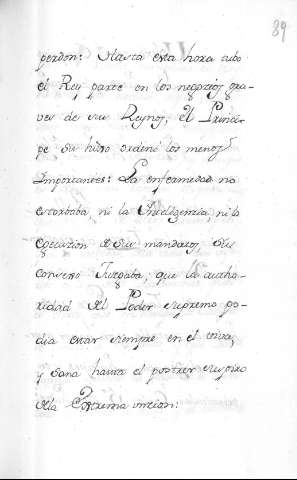 89
perdon: Hasta esta hora tubo
el Rey parte en los negozios gra-
ves de sus Reynos, el Princi-
pe su hixo ordenè los menos
Importantes: La enfermedad no
estorbaba, ni la Inteligencia, ni la
egecuzion de sus mandatos, Su
converso Juzgaba, que la autho-
ridad del Poder supremo po-
dia estar siempre en el
y sana hasta el postrer suspiro
de la Extrema uncion: